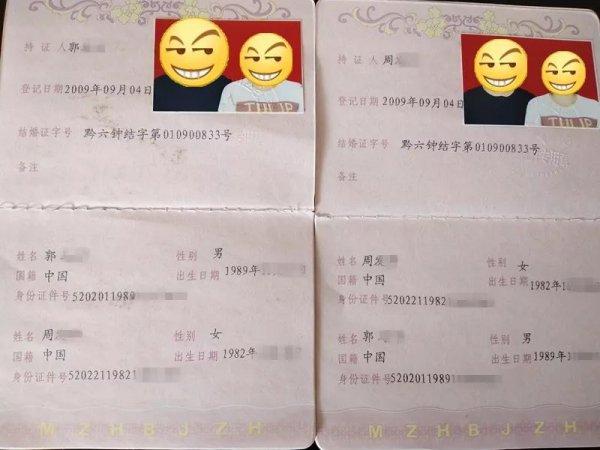 持证人 郭
登记日期 2009年09月04日
结婚证字号 黔六钟结字第010900833号
备注
姓名 郭 性别 男
国籍 中国 出生日期 1989年
身份证件号 5202011989
姓名 周 性别 女
国籍 中国 出生日期 1982年
身份证件号 52022119821
M Z H B J Z H
持证人 周
登记日期 2009年09月04日
结婚证字号 黔六钟结字第010900833号
备注
姓名 周 性别 女
国籍 中国 出生日期 1982年1
身份证件号 5202211982
姓名 郭 性别 男
国籍 中国 出生日期 1989年
身份证件号 5202011989
M Z H B J Z H